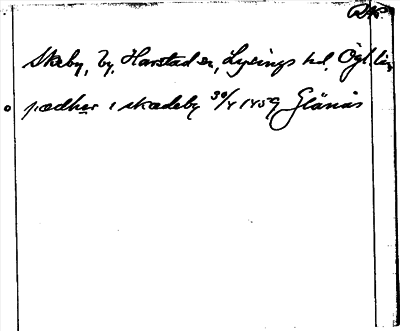 Skeby, by, Harstad sn, Lysings hd, Ögl. län
pædhær i skædeby 30/4 1459 Glänås